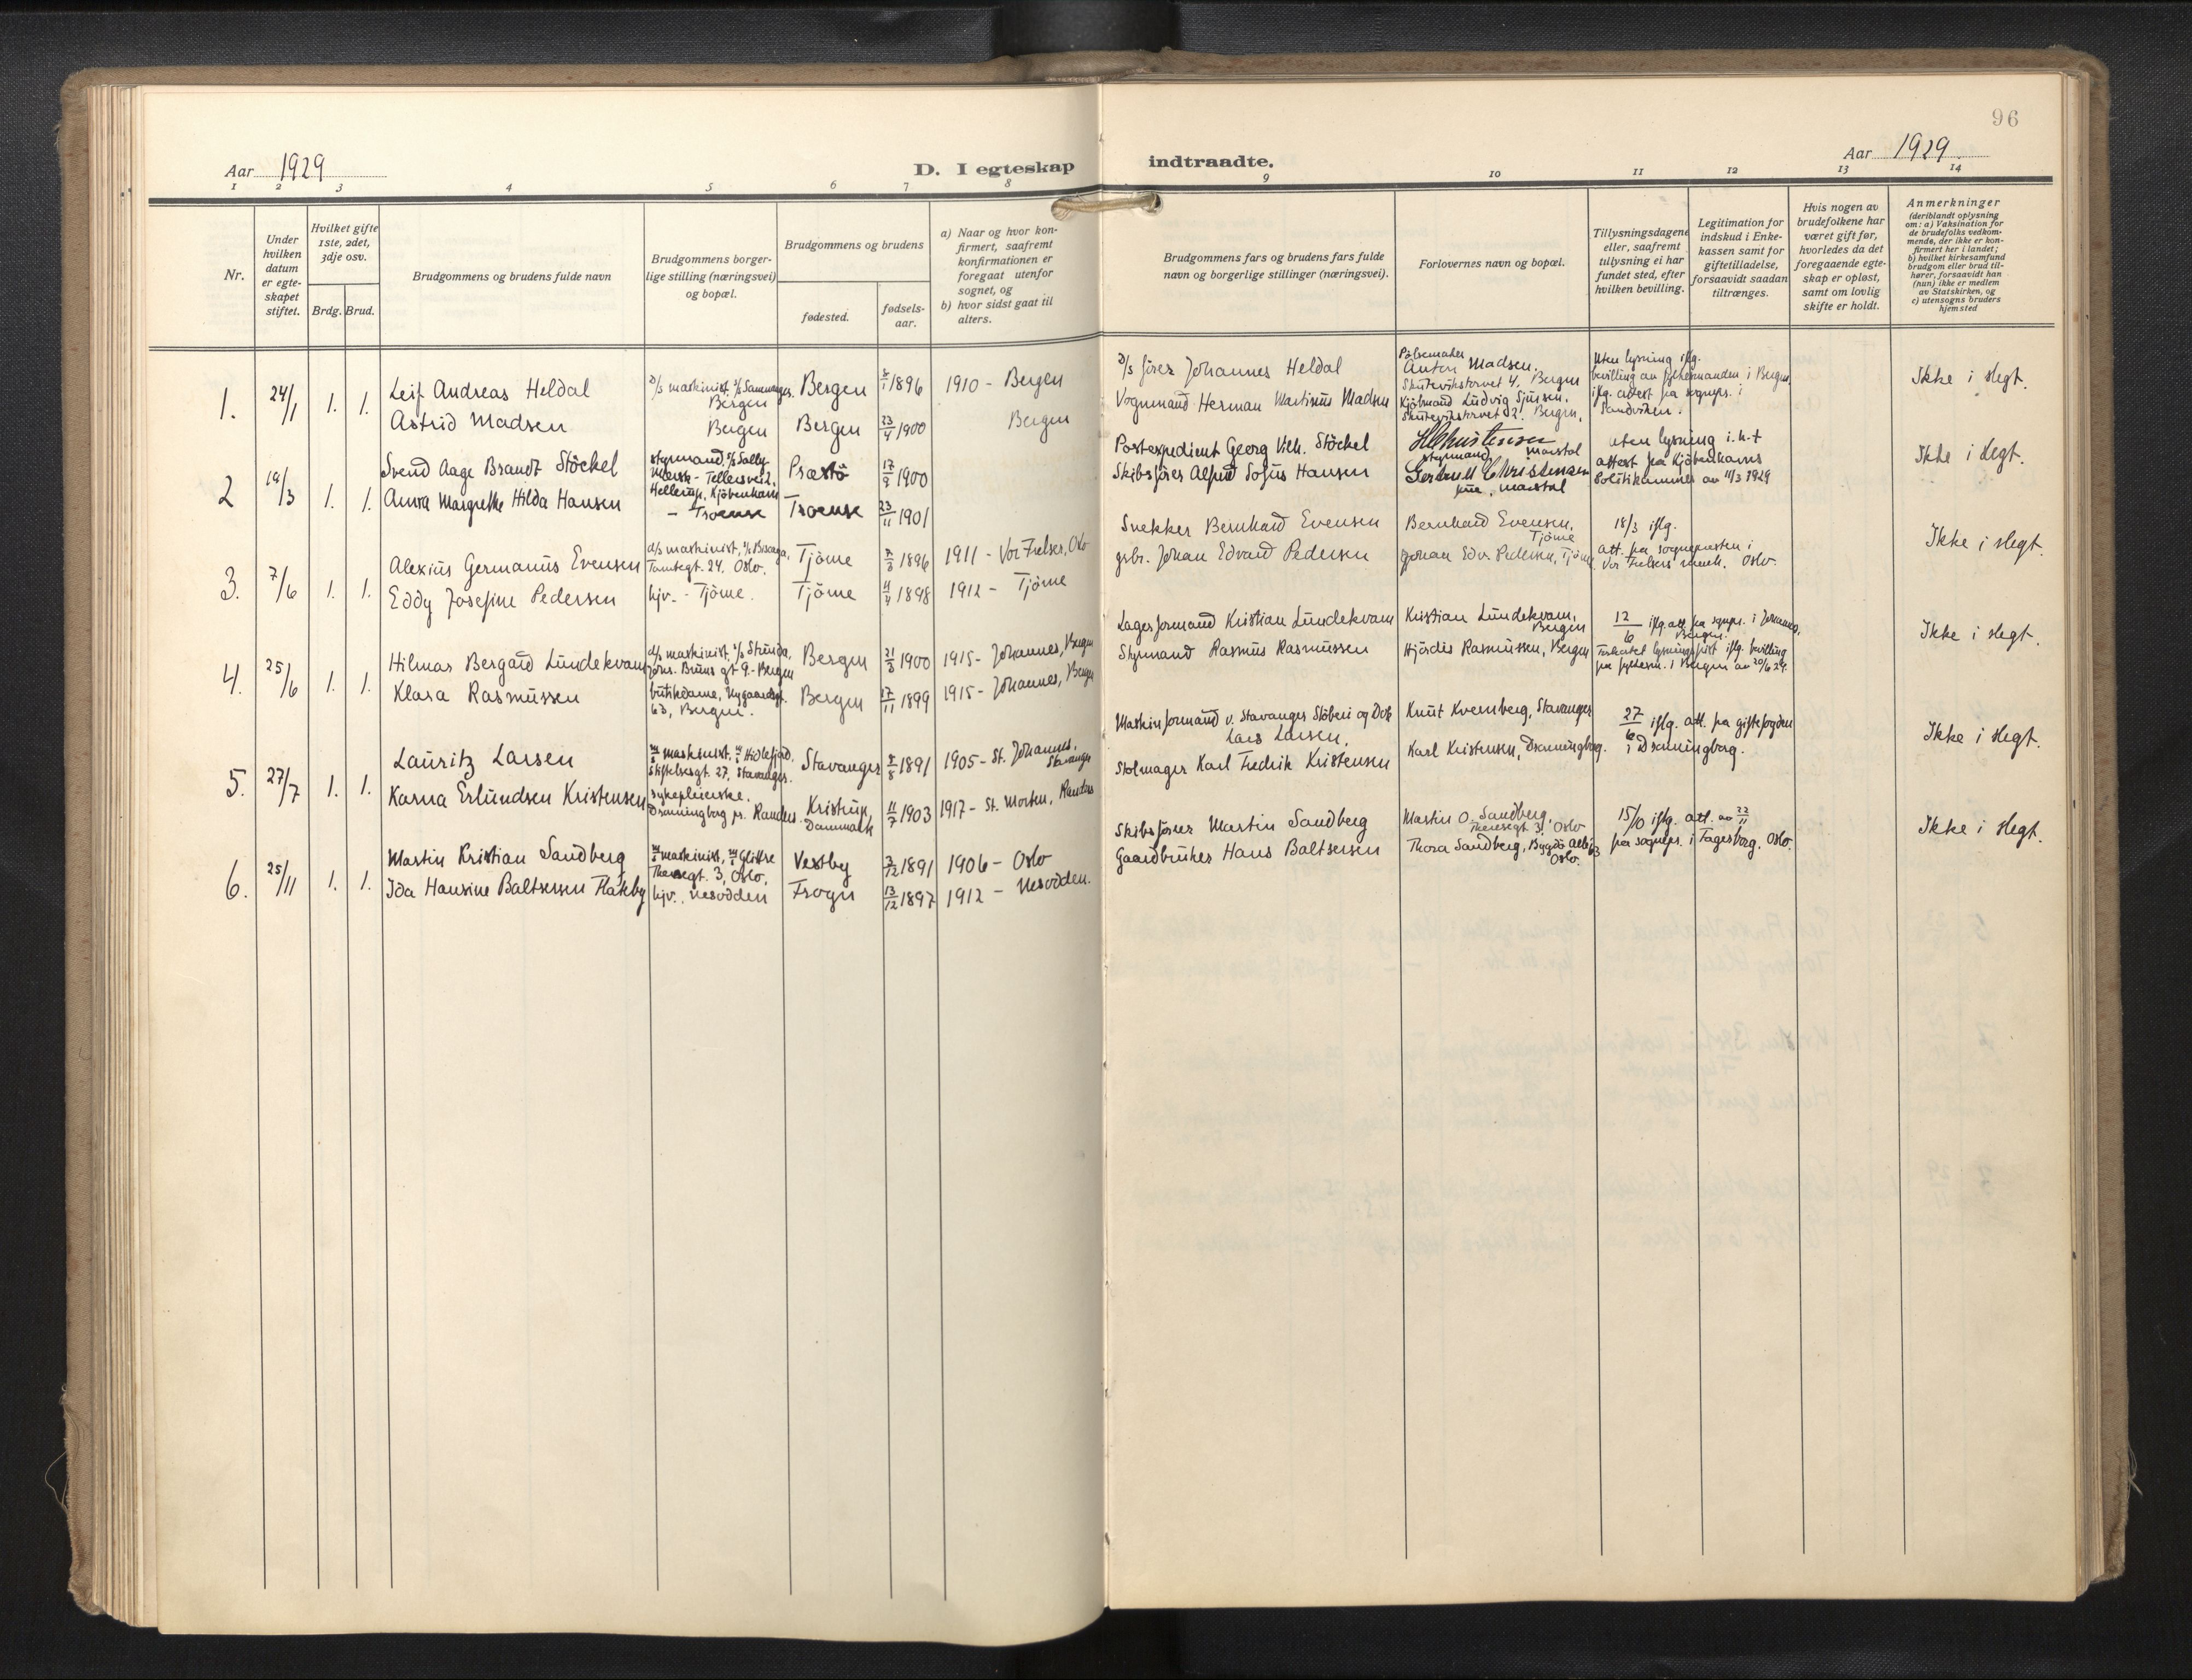 96
Aar 1929
D. I egteskap
indtraadte.
Aar 1929.
1 2 3 4 5 6 7 8 9 10 11 12 13 14
Nr.
Under hvilken datum er egte-skapet stiftet.
Hvilket gifte 1ste, 2det, 3dje osv.
Brdg. Brud.
Brudgommens og brudens fulde navn
Brudgommens borger-
lige stilling (næringsvei)
og bopæl.
Brudgommens og brudens
fødested.
fødsels-
aar.
a) Naar og hvor kon-
firmert, saafremt
konfirmationen er
foregaat utenfor
sognet, og
b) hvor sidst gaat til
alters.
Brudgommens fars og brudens fars fulde
navn og borgerlige stillinger (næringsvei).
Forlovernes navn og bopæl.
Tillysningsdagene
eller, saafremt
tillysning ei har
fundet sted, efter
hvilken bevilling.
Legitimation for
indskud i Enke-
kassen samt for
giftetilladelse,
forsaavidt saadan
tiltrænges.
Hvis nogen av
brudefolkene har
været gift før,
hvorledes da det
foregaaende egte-
skap er opløst,
samt om lovlig
skifte er holdt.
Anmerkninger
(deriblandt oplysning
om: a) Vaksination for
de brudefolks vedkom-
mende, der ikke er kon-
firmert her i landet;
b) hvilket kirkesamfund
brudgom eller brud til-
hører, forsaavidt han
(hun) ikke er medlem
av Statskirken, og
c) utensogns bruders
hjemsted
1. 24/1 1. 1.
Leif Andreas Heldal
Astrid Madsen
D/S maskinist
Bergen
Bergen
Bergen 1896 1910 - Bergen
Bergen 23/4 1900 Bergen
D/S fører Johannes Heldal
Vognmand Herman Martinus Madsen
Pølsemaker
Anton Madsen.
Skutevikstorvet 4, Bergen
Kjøbmand Ludvig Sjursen.
Skutevikstorvet 2. Bergen.
Uten lysning iflg.
bevilling av fylkesmanden i Bergen,
iflg. attest fra sognepr. i
Sandviken.
Ikke i slegt.
2 19/3 1. 1.
Svend Aage Brandt Stöckel
Anna Margrethe Hilda Hansen
styrmand. S/S Sally
Mærsk - Tellersvei 2.
Hellerup, Kjöbenhavn
- Troense
Præstö 17/9 1900
Troense 23/11 1901
Postexpedient Georg Vilh. Stöckel
Skibsfører Alfred Sofus Hansen
H Christensen
styrmand, Marstal
Gertrud Christensen
frue, Marstal
uten lysning i.h.t
attest fra Kjöbenhavns
Politikammer av 11/3 1929
Ikke i slegt.
3. 7/6 1. 1.
Alexius Germanus Evensen
Eddy Josefine Pedersen
d/s maskinist,
Tomtegt. 24. Oslo.
hjv. - Tjöme.
Tjöme 1896 1911 - Vor Frelser, Oslo
Tjöme 11/4 1898 1912 - Tjöme
Snekker Bernhard Evensen
grbr. Johan Edvard Pedersen
Bernhard Evensen,
Tjöme
Johan Edv. Pedersen, Tjöme
18/3 iflg.
att. fra sognepresten i
Vor Frelsers menh. Oslo.
Ikke i slegt.
4. 25/6 1. 1.
Hilmar Bergard Lundekvam
Klara Rasmussen
d/s maskinist, S/S Strinda,
Jons. Bruns gt 9. - Bergen
butikdame, Nygaardsgt.
63, Bergen.
Bergen 1900 1915 - Johannes, Bergen
Bergen 17/11 1899 1915 - Johannes, Bergen
Lagerformand Kristian Lundekvam
Styrmand Rasmus Rasmussen
Kristian Lundekvam,
Bergen
Hjördis Rasmussen, Bergen
12/6 iflg. att. fra sognepr. i Johannes,
Bergen.
Forkortet lysningsfrist iflg. bevilling
fra fylkesm. i Bergen av 20/6 29.
Ikke i slegt.
5. 27/7 1. 1.
Lauritz Larsen
Karna Erlundsen Kristensen
m/s maskinist, m/s Hidlefjord,
Stiftelsesgt. 27, Stavanger.
sykepleierske.
Dronningborg pr. Randers.
Stavanger 1891 1905 - St. Johannes,
Stavanger
Kristrup, Danmark 11/7 1903 1917 - St. Morten, Randers
Maskinformand v. Stavanger Stöberi og Dok
Lars Larsen.
Stolmager Karl Fredrik Kristensen
Knut Kvernberg, Stavanger
Karl Kristensen, Dronningborg.
27/6 iflg. att. fra giftefogden
i Dronningborg.
Ikke i slegt.
6. 25/11 1. 1.
Martin Kristian Sandberg
Ida Hansine Baltsersen Flateby
m/s maskinist, m/s Glittre
Theresegt. 3, Oslo.
hjv., Nesodden
Vestby 3/12 1891 1906 - Oslo
Frogn 13/12 1897 1912 - Nesodden.
Skibsfører Martin Sandberg
Gaardbruker Hans Baltsersen
Martin O. Sandberg,
Theresegt 3. Oslo
Thora Sandberg, Bygdö
Oslo.
15/10 iflg. att. av 22/11
fra sognepr. i Fagerborg, Oslo.
Ikke i slegt.